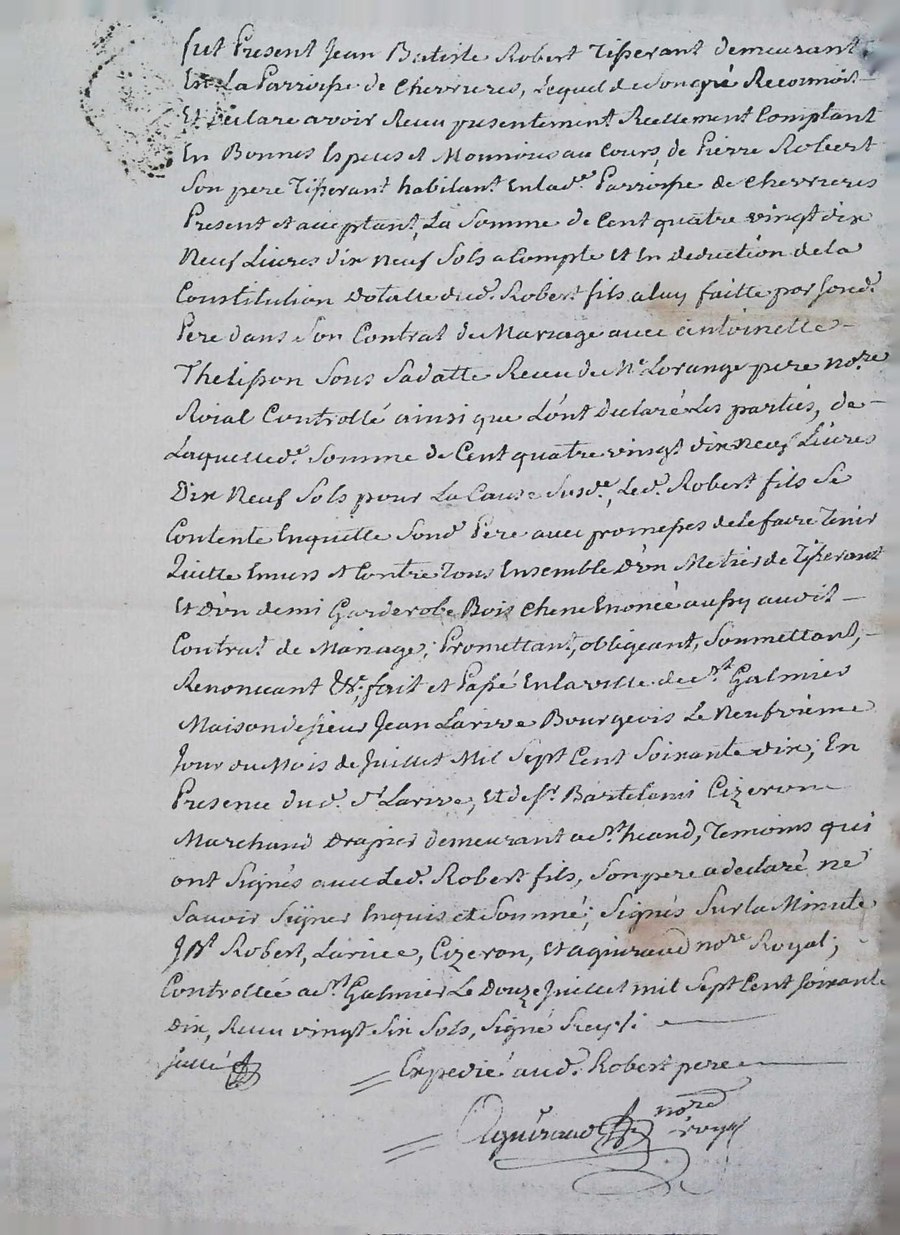 fut Present Jean Batiste Robert Tisserant demeurant
En La Parroisse de Cherrieres, Lequel de Son gré Reconnoit
Et declare avoir Recu presentement Reellement Comptant
En Bonnes Especes et Monnoies au Cours, de Pierre Robert
Son pere Tisserant habitant En lade. Parroisse de Cherrieres
Present et aceptant, La Somme de Cent quatre vingt dix
Neuf Livres dix neuf Sols a Compte et En deduction de la
Constitution Dotalle dud. Robert fils a luy faitte par Sond.
Pere dans Son Contrat de Mariage avec antoinette
Thelisson Sous Sa datte Recu de Me. Lorange pere nore.
Roial Controllé ainsi que L'ont declaré Les parties, de
Laquelle de. Somme de Cent quatre vingt dix Neuf Livres
Dix Neuf Sols pour La Cause Susde, Led. Robert fils Se
Contente Enquitte Sond Pere avec promesses de le faire Tenir
Quitte Envers et Contre Tous Ensemble D'un Metier de Tisserant
Et D'un demi Garderobe Bois Chene Enoncé aussy audit
Contrat. de Mariage; Promettant, obligeant, Soumettant,
Renoncant &c, fait et Passé En la ville de St. Galmier
Maison de sieur Jean Larive Bourgeois Le Neufvieme
Jour du Mois de Juillet Mil Sept Cent Soixante dix; En
Presence dud. Sr. Larive, Et de Sr. Bartelami Cizeron
Marchand Drapier demeurant a St. heand, Temoins qui
ont Signés avec Led. Robert fils, Son pere a declaré ne
Savoir Signer Enquis et Sommé; Signés Sur la Minute
J Bt Robert, Larive, Cizeron, et aguiraud nore Royal;
Controllée a St Galmier Le Douze Juillet mil Sept Cent Soixante
Dix, Recu vingt Six Sols, Signé
Expedié aud. Robert pere
nore
Aguiraud royal